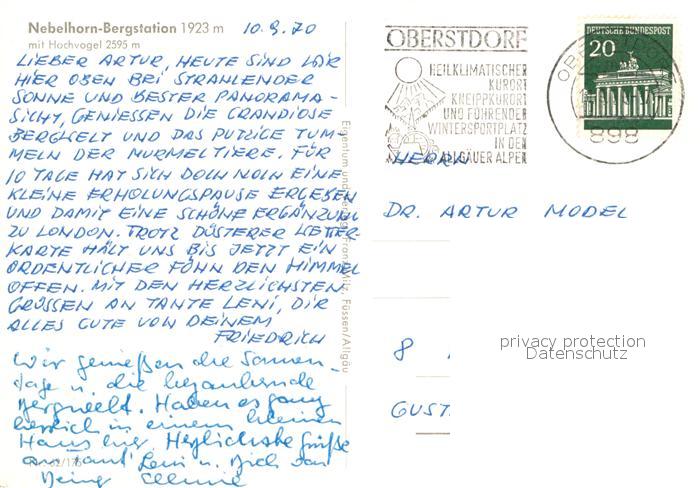 Nebelhorn-Bergstation 1923 m
mit Hochvogel 2595 m
10.9.70
LIEBER ARTUR, HEUTE SIND WIR
HIER OBEN BEI STRAHLENDER
SONNE UND BESTER PANORAMA-
SICHT, GENIESSEN DIE GRANDIOSE
BERGWELT UND DAS PUTZIGE TUM-
MELN DER MURMELTIERE. FÜR
10 TAGE HAT SICH DOCH NOCH EINE
KLEINE ERHOLUNGSPAUSE ERGEBEN
UND DAMIT EINE SCHÖNE ERGÄNZUNG
ZU LONDON. TROTZ DÜSTERER WETTER-
KARTE HÄLT UNS BIS JETZT EIN
ORDENTLICHER FÖHN DEN HIMMEL
OFFEN. MIT DEN HERZLICHSTEN
GRÜSSEN AN TANTE LENI, DIR
ALLES GUTE VON DEINEM
FRIEDRICH
Wir genießen die Sonnen-
tage u. die bezaubernde
Bergwelt. Haben es ganz
herrlich in einem kleinen
Haus hier. Herzlichste Grüße
an Tante Leni u. Dich von
Deiner
Eigentum und Verlag Franz Milz, Füssen/Allgäu
OBERSTDORF
HEILKLIMATISCHER
KURORT
KNEIPPKURORT
UND FÜHRENDER
WINTERSPORTPLATZ
IN DEN
ALLGÄUER ALPEN
DEUTSCHE BUNDESPOST
20
OBERSTDORF
898
HERRN
DR. ARTUR MODEL
8
GUST
privacy protection
Datenschutz